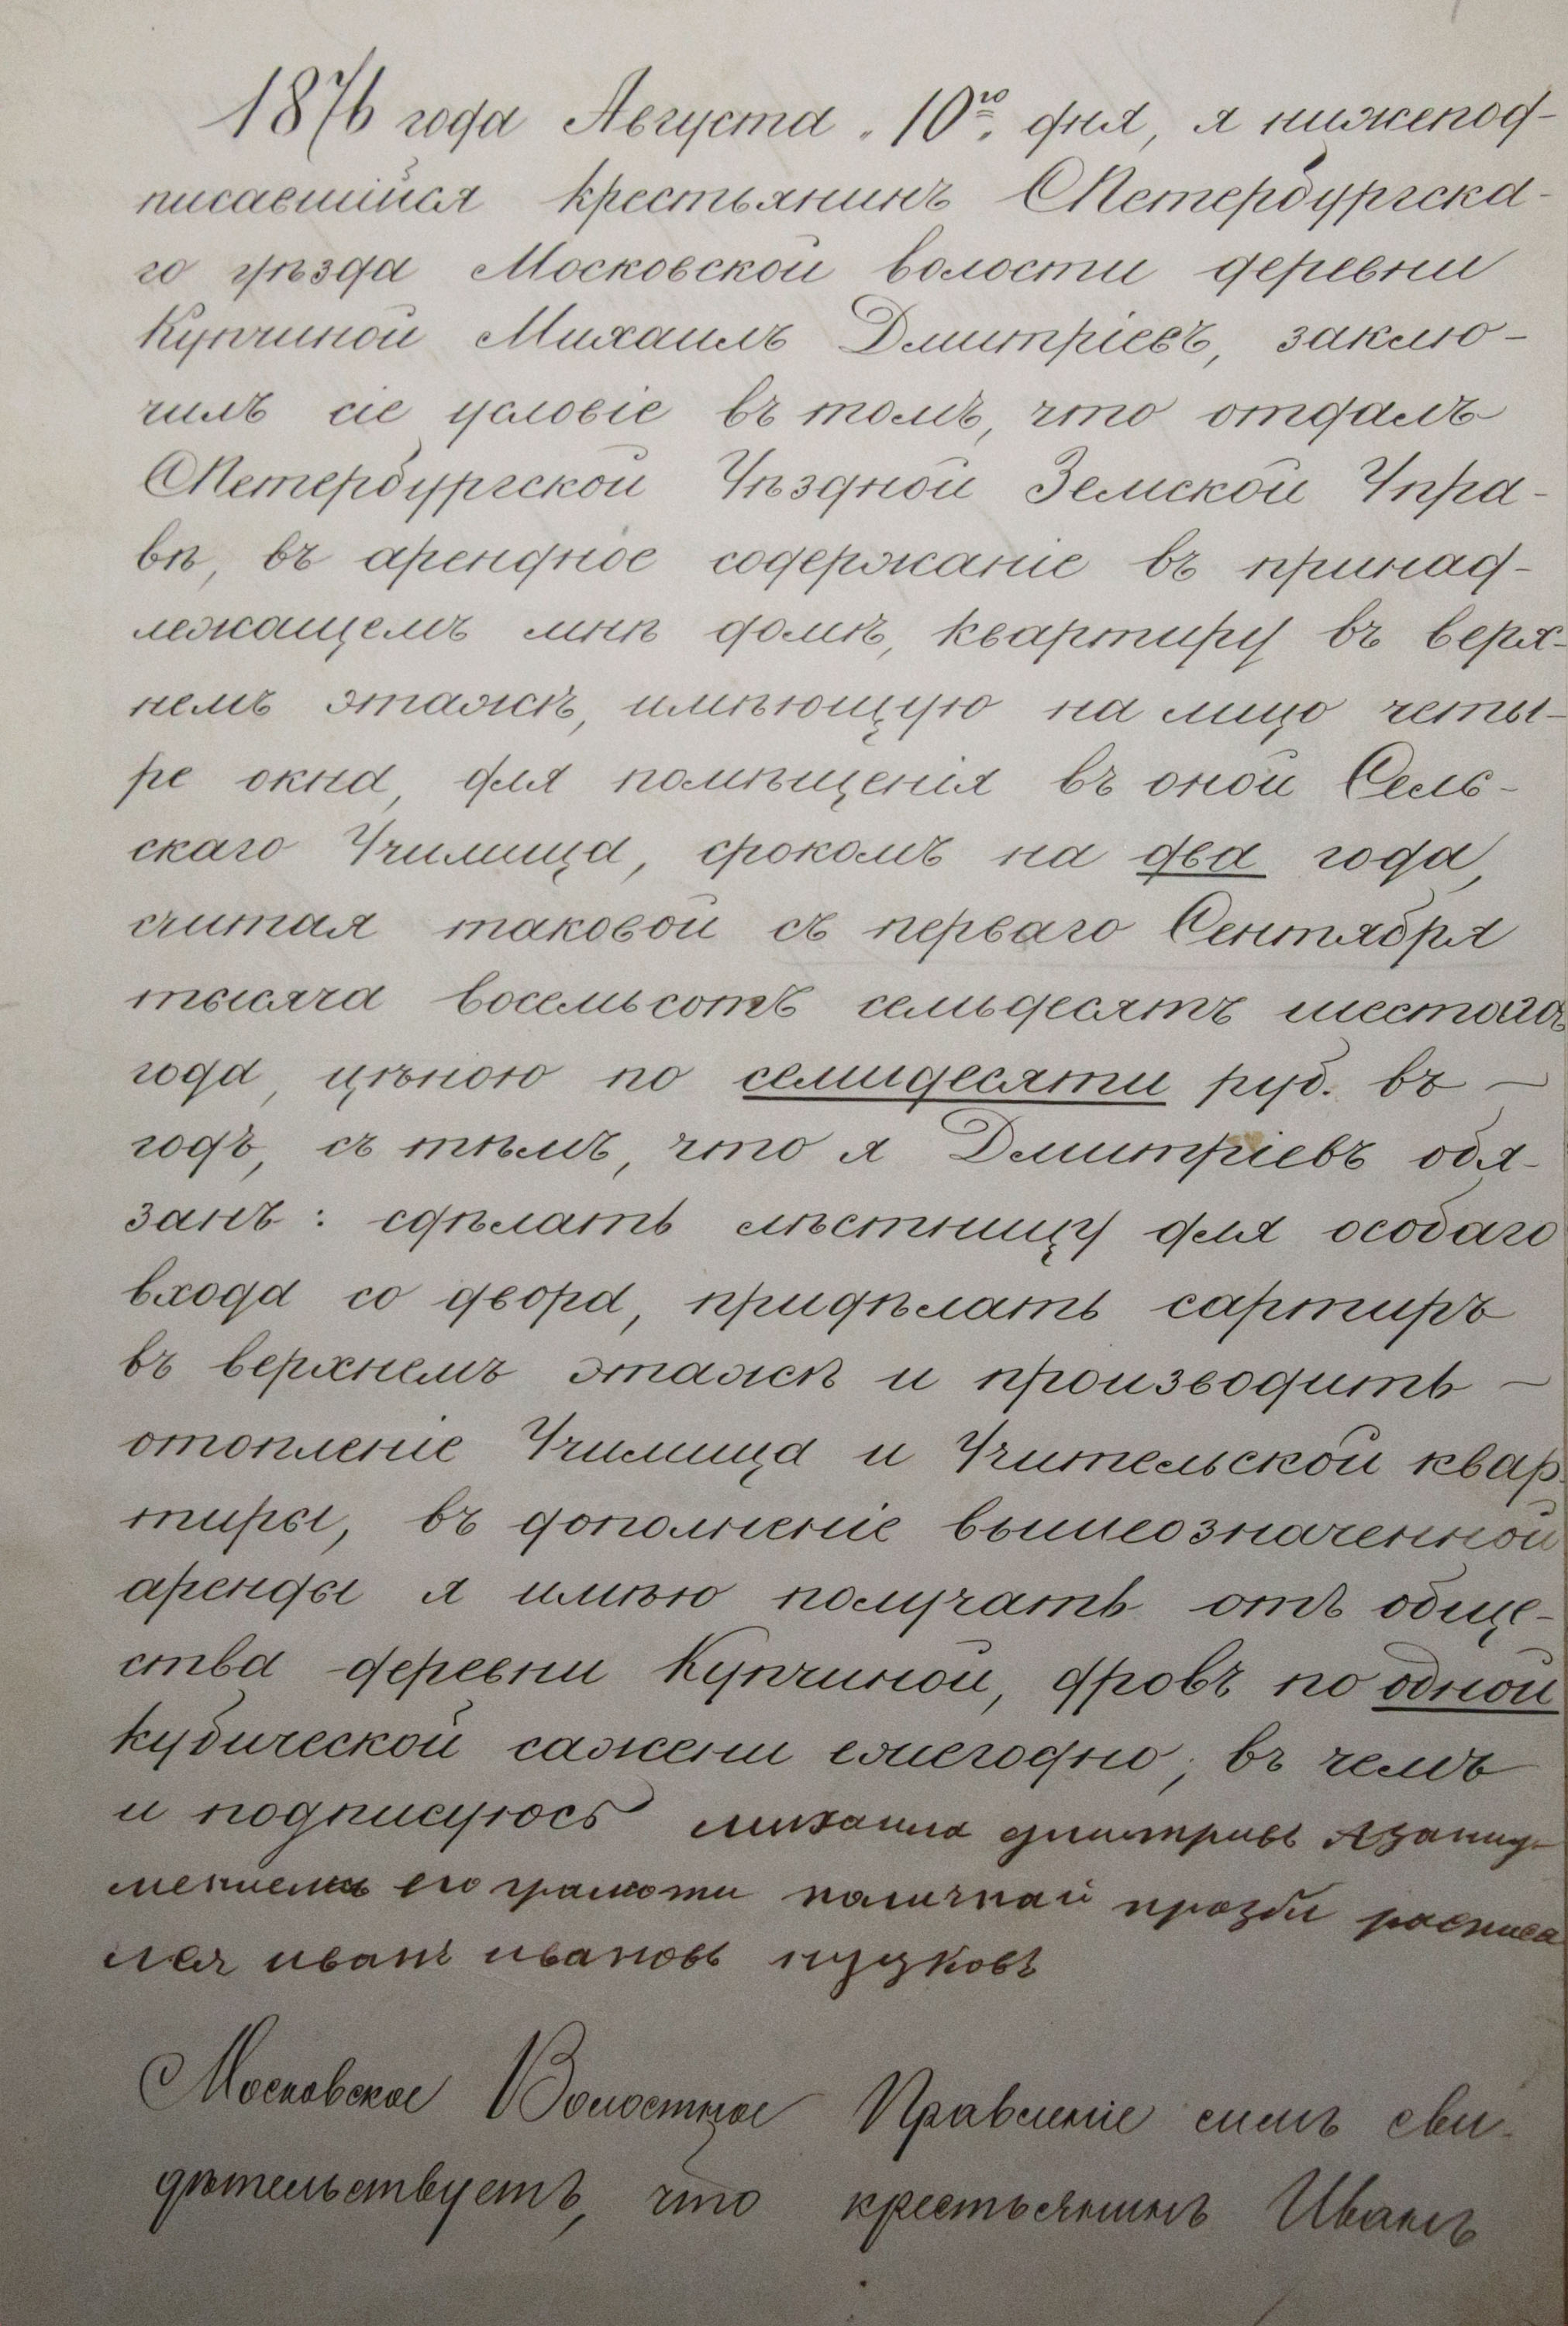 1876 года Августа „10го„ дня, я нижепод-
писавшийся крестьянинъ СПетербургска-
го уѣзда Московской волости деревни
Купчиной Михаилъ Дмитріевъ, заклю-
чилъ сіе условіе въ томъ, что отдалъ
СПетербургской Уѣздной Земской Упра-
вѣ, въ арендное содержаніе въ принад-
лежащемъ мнѣ домѣ, квартиру въ верх-
немъ этажѣ, имѣющую на лицо четы-
ре окна, для помѣщенія въ оной Сель-
скаго Училища, срокомъ на два года,
считая таковой съ перваго Сентября
тысяча восемьсотъ семьдесятъ шестаго
года, цѣною по семидесяти руб. въ —
годъ, съ тѣмъ, что я Дмитріевъ обя-
занъ: сдѣлать лѣстницу для особаго
входа со двора, придѣлать сартиръ
въ верхнемъ этажѣ и производить —
отопленіе Училища и Учительской квар-
тиры, въ дополненіе вышеозначенной
аренды я имѣю получать отъ обще-
ства деревни Купчиной, дровъ по одной
кубической сажени ежегодно, въ чемъ
и подписуюсь михаила дмитривъ Азаниу-
мениемъ его грамоти паличнай прозби расписа
лся иванъ ивановъ пузуковъ
Московское Волостное Правленіе симъ сви-
дѣтельствуетъ, что крестьянинъ Иванъ